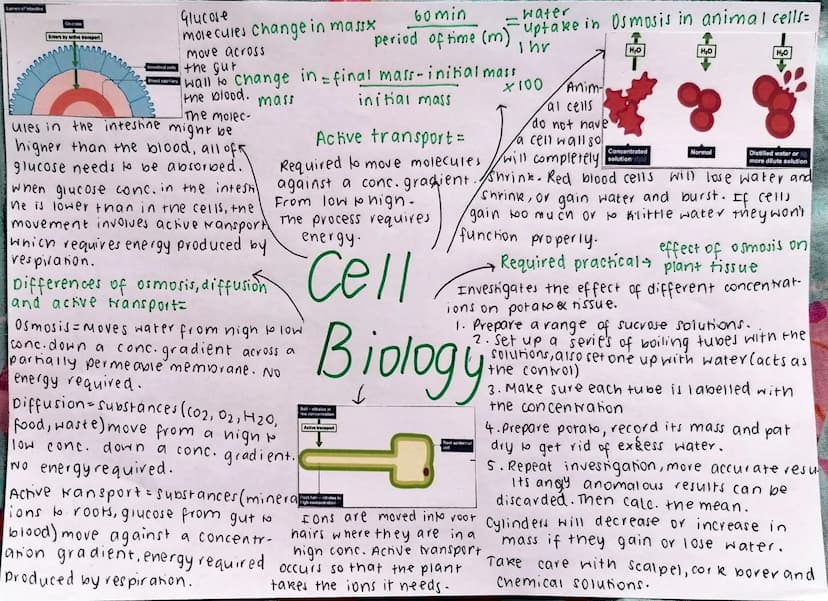 Lumen of intestine
Glucose
Enters by active transport
Epithelial cells
Blood capillary
Glucose
molecules
move across
the gut
wall to
the blood.
The molec-
ules in the intestine might be
higher than the blood, all of
glucose needs to be absorbed.
When glucose conc. in the intesti
ne is lower than in the cells, the
movement involves active transport
which requires energy produced by
respiration.
change in mass x 60 min / period of time (m) = water uptake in 1 hr
change in mass = final mass - initial mass / initial mass x 100
Active transport =
Required to move molecules
against a conc. gradient.
From low to high.
The process requires
energy.
Osmosis in animal cells =
H2O
H2O
H2O
Concentrated solution
Normal
Distilled water or more dilute solution
Anim-
al cells
do not have
a cell wall so
will completely
shrink. Red blood cells will lose water and
shrink, or gain water and burst. If cells
gain too much or to little water they won't
function properly.
Cell
Biology
Differences of osmosis, diffusion
and active transport =
Osmosis = Moves water from high to low
conc. down a conc. gradient across a
partially permeable membrane. No
energy required.
Diffusion = substances (CO2, O2, H2O,
food, waste) move from a high to
low conc. down a conc. gradient.
No energy required.
Active transport = substances (minera
ions to roots, glucose from gut to
blood) move against a concentr-
ation gradient, energy required
produced by respiration.
Soil - nitrates in low concentration
Active transport
Root hair - nitrates in high concentration
Root epidermal cell
Ions are moved into root
hairs where they are in a
high conc. Active transport
occurs so that the plant
takes the ions it needs.
Required practical → effect of osmosis on
plant tissue
Investigates the effect of different concentrat-
ions on potato tissue.
1. Prepare a range of sucrose solutions.
2. Set up a series of boiling tubes with the
solutions, also set one up with water (acts as
the control)
3. Make sure each tube is labelled with
the concentration
4. Prepare potato, record its mass and pat
dry to get rid of excess water.
5. Repeat investigation, more accurate resu
lts any anomalous results can be
discarded. Then calc. the mean.
Cylinders will decrease or increase in
mass if they gain or lose water.
Take care with scalpel, cork borer and
chemical solutions.